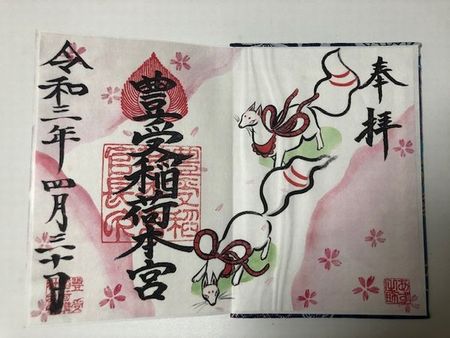 奉拝
豊受稲荷本宮
令和三年四月三十日